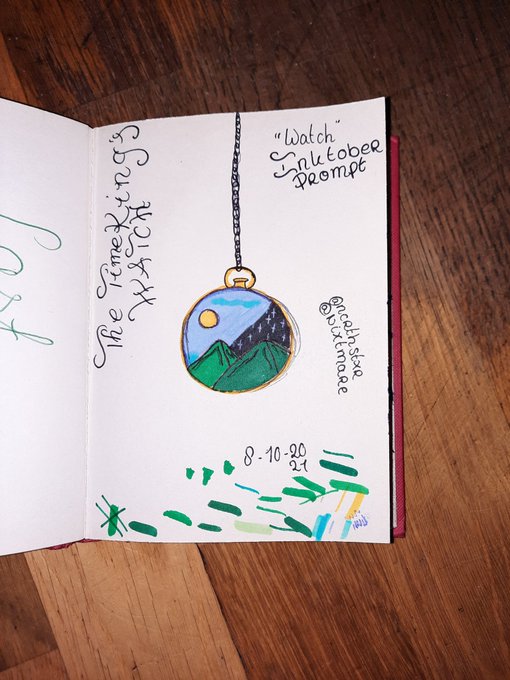 The TimeKing's
WATCH
"Watch"
Inktober
Prompt
@northstxr
@nixtmare
8-10-20
21